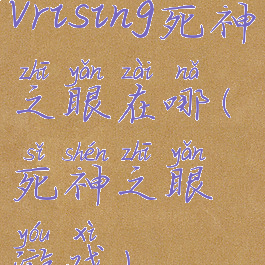 vrising死神
zhī yǎn zài nǎ
之眼在哪(
sǐ shén zhī yǎn
死神之眼
yóu xì
游戏)